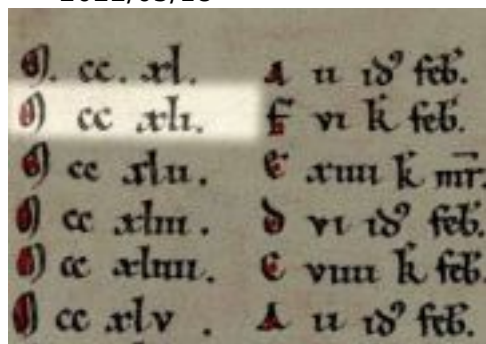 M. cc. xl. A ii idꝰ feb̄.
M cc xli. f vi k̄ feb̄.
M cc xlii. E xiiii k̄ mr̄.
M cc xliii. d vi idꝰ feb̄.
M cc xliiii. C viiii k̄ feb̄.
M cc xlv . A ii idꝰ feb̄.